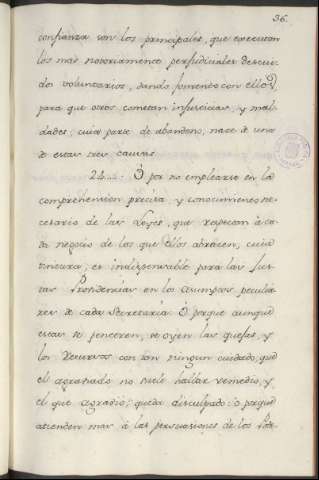 36.
confianza son los principales, que executan
los mas notoriamente perjudiciales descui-
dos voluntarios, dando fomento con ellos,
para que otros cometan injusticias, y mal-
dades; cuia parte de abandono, nace de una
de estas tres causas.
24.... Ó por no emplearse en la
comprehension precisa, y conocimiento ne-
cesario de las Leyes, que respectan á ca-
da negocio de los que Ellos abrazen, cuia
tintura, es indispensable para las Jus-
tas Providencias en los asumptos peculia-
res de cada Secretaría: Ó porque aunque
esas se penetren, se oyen las quejas, y
los Recursos con tan ningun cuidado, que
el agraviado no suele hallar remedio, y
el que agravió, queda disculpado: ó porque
atienden mas á las persuasiones de los Po-